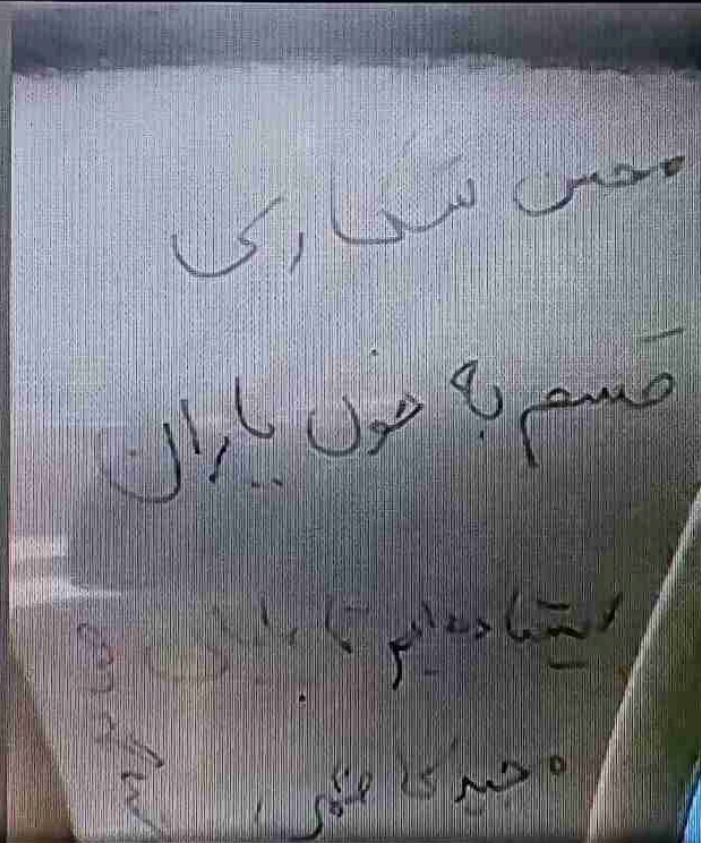 محسن شکاری
قسم به خون یاران
ایستاده‌ایم تا پایان
مجید